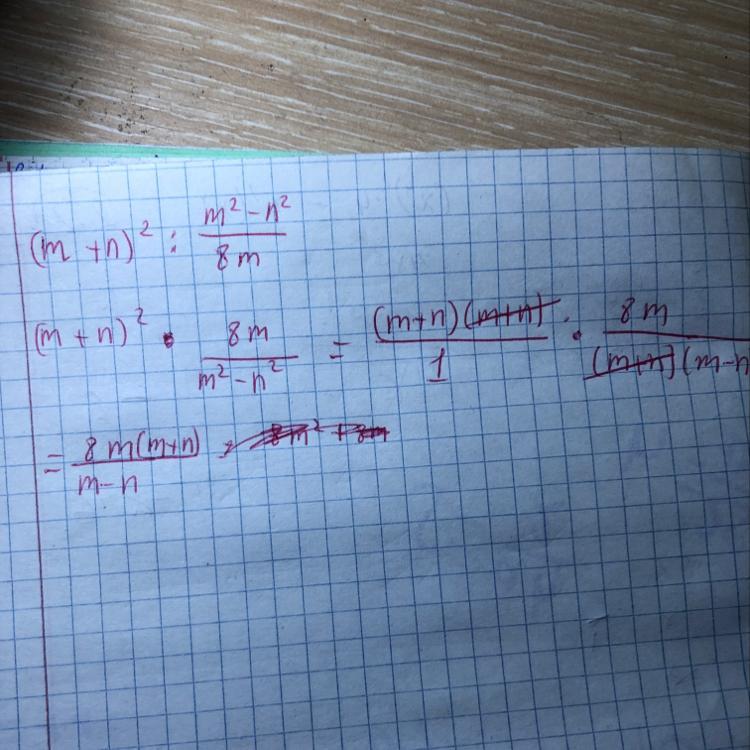 (m + n)² : (m² - n²)/(8m)
(m + n)² · 8m/(m² - n²) = (m+n)(m+n)/1 · 8m/((m+n)(m-n
= 8m(m+n)/(m-n)